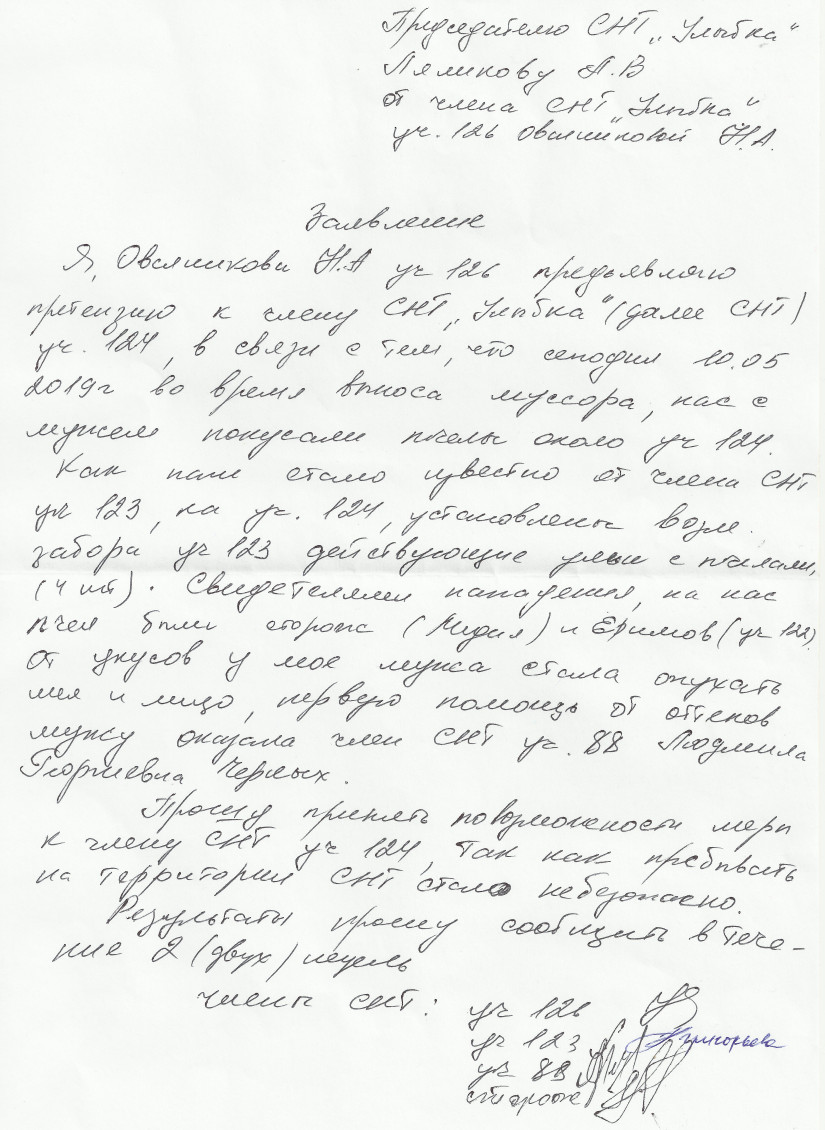 Председателю СНТ „Улыбка“
Лямикову А.В
от члена СНТ „Улыбка“
уч. 126 Овсянниковой Н.А.
Заявление
Я, Овсянникова Н.А уч 126 предъявляю
претензию к члену СНТ „Улыбка“ (далее СНТ)
уч. 124, в связи с тем, что сегодня 10.05
2019г во время выноса муссора, нас с
мужем покусали пчелы около уч 124.
Как нам стало известно от члена СНТ
уч 123, на уч. 124, установлены возле
забора уч 123 действующие ульи с пчелами,
(4 шт). Свидетелями нападения, на нас
пчел были сторож (Лидия) и Ефимов (уч 122).
От укусов у мое мужа стала опухать
шея и лицо, первую помощь от оттеков
мужу оказала член СНТ уч. 88 Людмила
Георгиевна Черных.
Прошу принять по возможности меры
к члену СНТ уч 124, так как пребывать
на территории СНТ стало небезопасно.
Результаты прошу сообщить в тече-
ние 2 (двух) недель
члены СНТ:
уч 126
уч 123 Григорьева
уч 88
сторож